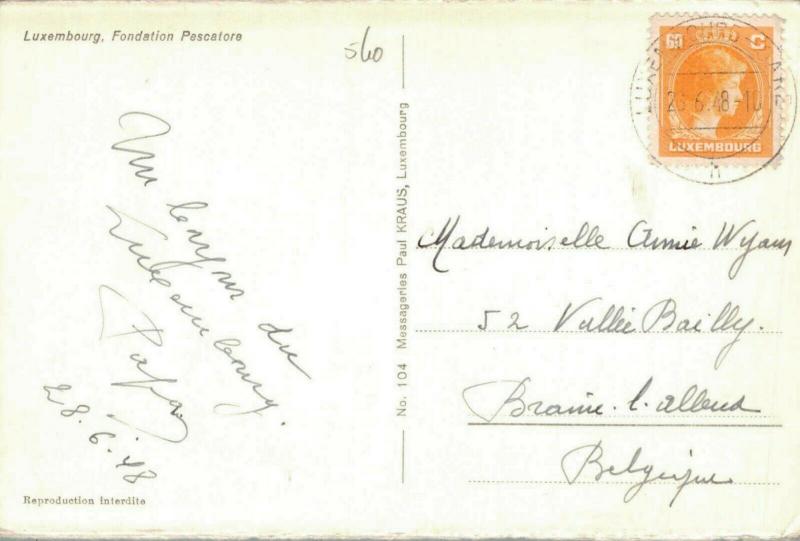 Luxembourg, Fondation Pescatore
560
60 C
LUXEMBOURG
28.6.48-10
h
Un bonjour du
Luxembourg.
Papa
28.6.48
No. 104 Messageries Paul KRAUS, Luxembourg
Mademoiselle Annie Wyam
52 Vallée Bailly.
Braine-l'alleud
Belgique
Reproduction interdite